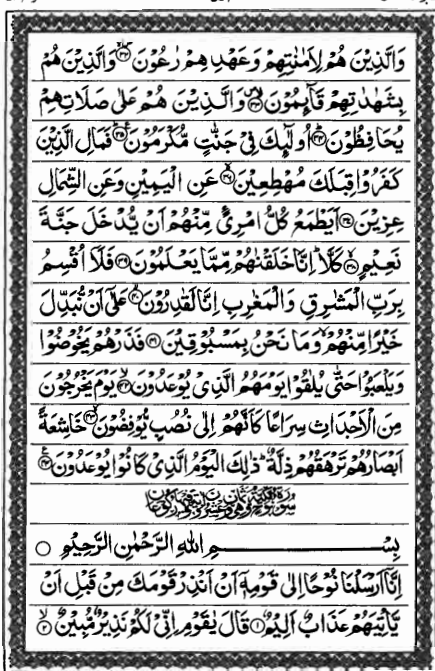 وَالَّذِيْنَ هُمْ لِاَمٰنٰتِهِمْ وَعَهْدِهِمْ رٰعُوْنَ ۙ۝٣٢ وَالَّذِيْنَ هُمْ
بِشَهٰدٰتِهِمْ قَآىِٕمُوْنَ ۙ۝٣٣ وَالَّذِيْنَ هُمْ عَلٰى صَلَاتِهِمْ
يُحَافِظُوْنَ ؕ۝٣٤ اُولٰٓىِٕكَ فِيْ جَنّٰتٍ مُّكْرَمُوْنَ ؕ۝٣٥ فَمَالِ الَّذِيْنَ
كَفَرُوْا قِبَلَكَ مُهْطِعِيْنَ ۙ۝٣٦ عَنِ الْيَمِيْنِ وَعَنِ الشِّمَالِ
عِزِيْنَ ۝٣٧ اَيَطْمَعُ كُلُّ امْرِئٍ مِّنْهُمْ اَنْ يُّدْخَلَ جَنَّةَ
نَعِيْمٍ ۙ۝٣٨ كَلَّا ؕ اِنَّا خَلَقْنٰهُمْ مِّمَّا يَعْلَمُوْنَ ۝٣٩ فَلَاۤ اُقْسِمُ
بِرَبِّ الْمَشٰرِقِ وَالْمَغٰرِبِ اِنَّا لَقٰدِرُوْنَ ۙ۝٤٠ عَلٰۤى اَنْ نُّبَدِّلَ
خَيْرًا مِّنْهُمْ ۙ وَمَا نَحْنُ بِمَسْبُوْقِيْنَ ۝٤١ فَذَرْهُمْ يَخُوْضُوْا
وَيَلْعَبُوْا حَتّٰى يُلٰقُوْا يَوْمَهُمُ الَّذِيْ يُوْعَدُوْنَ ۙ۝٤٢ يَوْمَ يَخْرُجُوْنَ
مِنَ الْاَجْدَاثِ سِرَاعًا كَاَنَّهُمْ اِلٰى نُصُبٍ يُّوْفِضُوْنَ ۙ۝٤٣ خَاشِعَةً
اَبْصَارُهُمْ تَرْهَقُهُمْ ذِلَّةٌ ؕ ذٰلِكَ الْيَوْمُ الَّذِيْ كَانُوْا يُوْعَدُوْنَ ۝٤٤
بِسْمِ اللّٰهِ الرَّحْمٰنِ الرَّحِيْمِ ○
اِنَّاۤ اَرْسَلْنَا نُوْحًا اِلٰى قَوْمِهٖۤ اَنْ اَنْذِرْ قَوْمَكَ مِنْ قَبْلِ اَنْ
يَّاْتِيَهُمْ عَذَابٌ اَلِيْمٌ ۝١ قَالَ يٰقَوْمِ اِنِّيْ لَكُمْ نَذِيْرٌ مُّبِيْنٌ ۙ۝٢